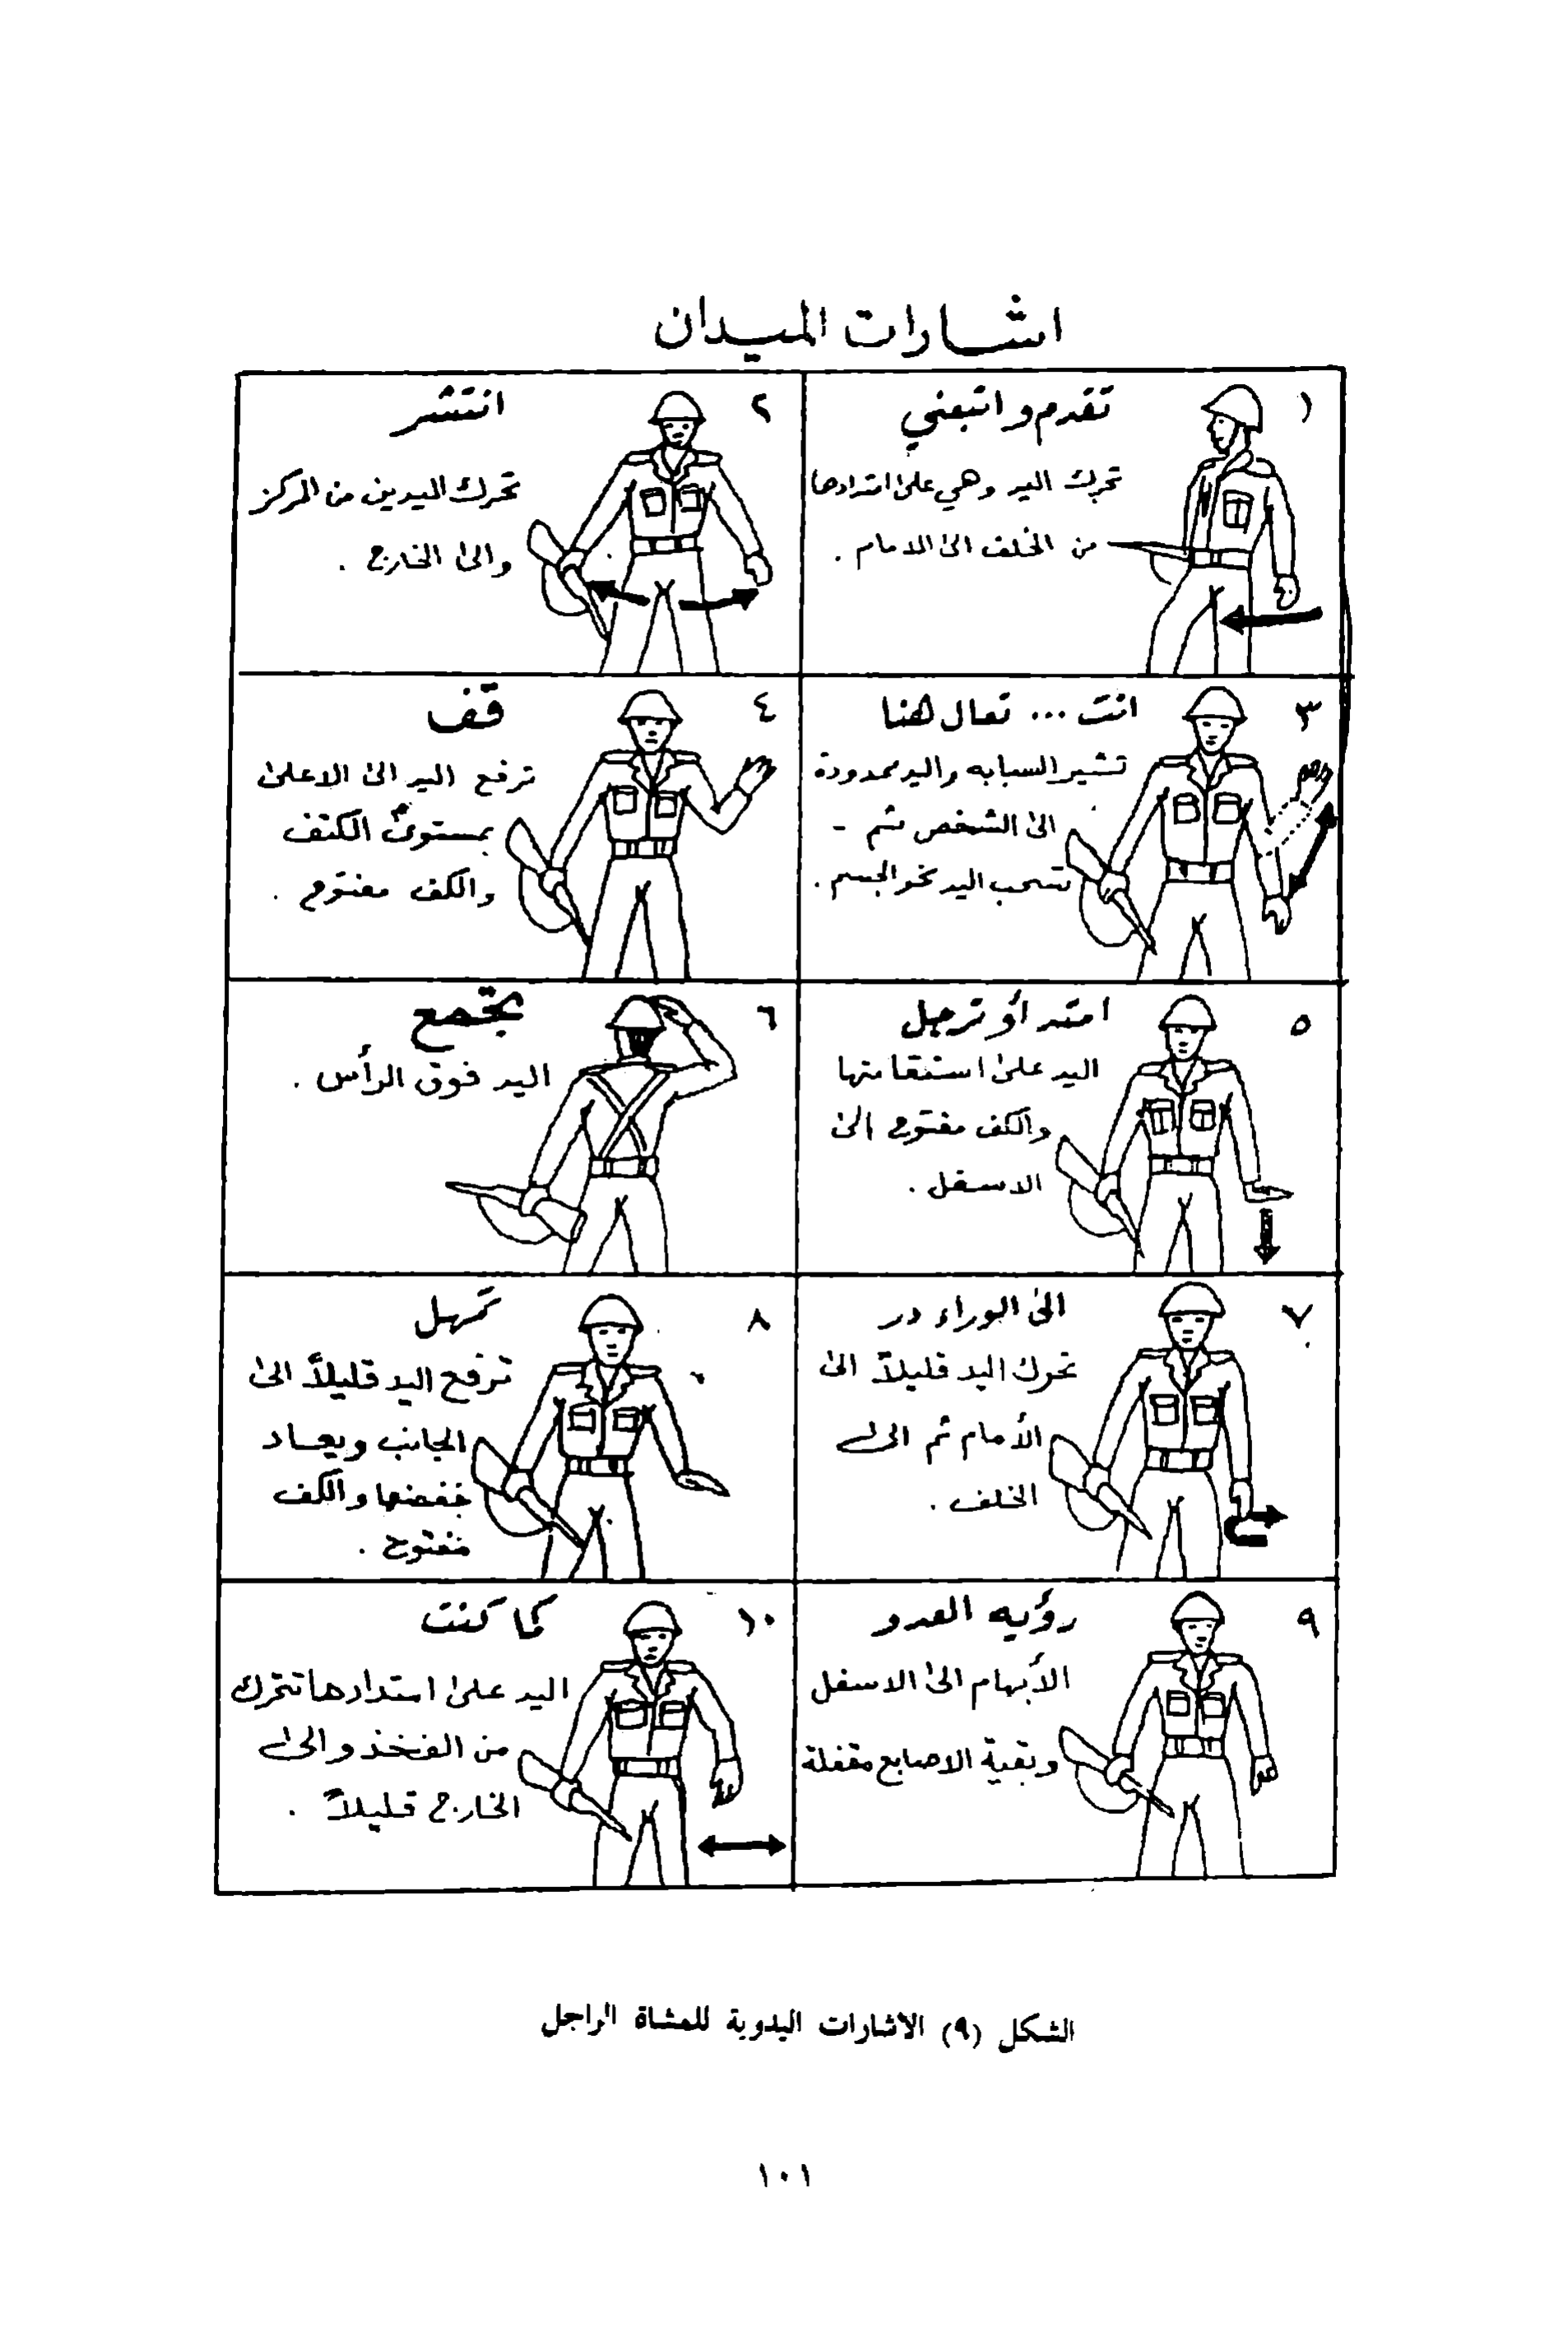 اشارات الميدان
١
تقدم واتبعني
تحرك اليد وهي على امتدادها
من الخلف الى الامام .
٢
انتشر
تحرك اليدين من المركز
والى الخارج .
٣
انت ... تعال هنا
تشير السبابه واليد ممدودة
الى الشخص ثم -
تسحب اليد نحو الجسم .
٤
قف
ترفع اليد الى الاعلى
بمستوى الكتف
والكف مفتوح .
٥
امتد أو ترجل
اليد على استقامتها
والكف مفتوح الى
الاسفل .
٦
تجمع
اليد فوق الرأس .
٧
الى الوراء در
تحرك اليد قليلاً الى
الأمام ثم الى
الخلف .
٨
تمهل
ترفع اليد قليلاً الى
الجانب ويعاد
خفضها والكف
مفتوح .
٩
رؤيه العدو
الأبهام الى الاسفل
وبقية الاصابع مقفلة
١٠
كما كنت
اليد على استدادها تتحرك
من الفخذ والى
الخارج قليلاً .
الشكل (٩) الاشارات اليدوية للمشاة الراجل
١٠١